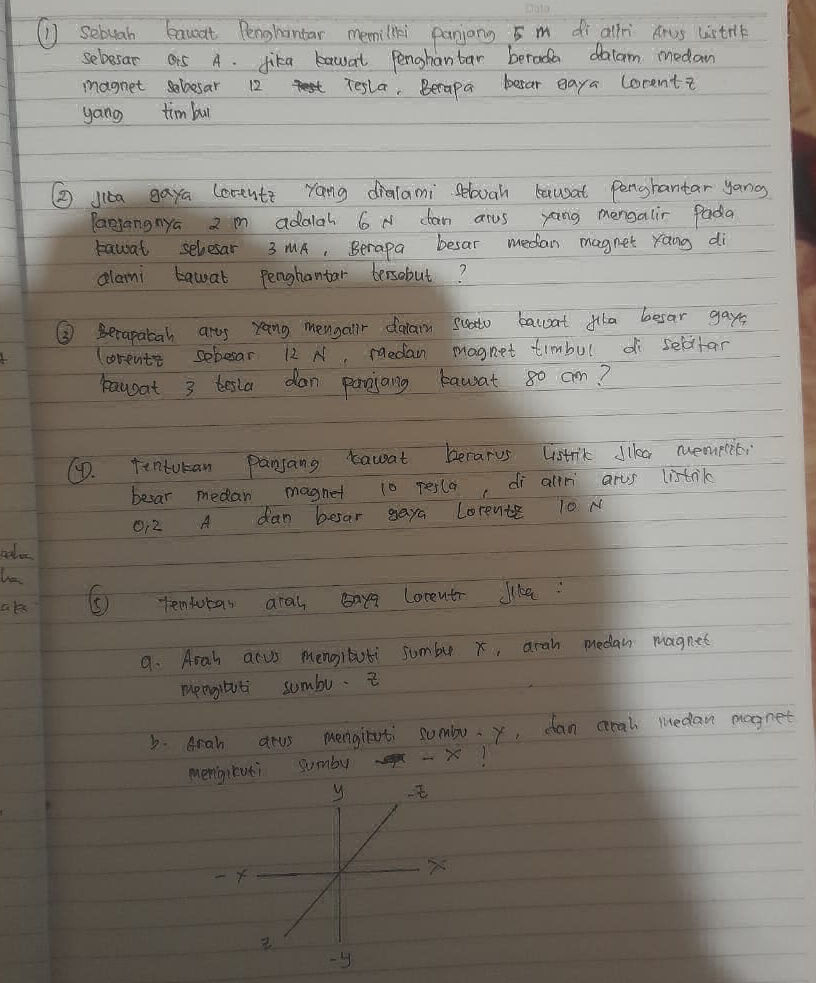 Data
① Sebuah kawat Penghantar memiliki panjang 5 m di aliri Arus Listrik
sebesar 0,5 A. Jika kawat Penghantar berada dalam medan
magnet sebesar 12 Tesla, Berapa besar gaya Lorentz
yang timbul
② Jika gaya Lorentz Yang dialami sebuah kawat Penghantar yang
Panjangnya 2 m adalah 6 N dan arus yang mengalir Pada
kawat sebesar 3 MA, Berapa besar medan magnet Yang di
alami kawat Penghantar tersebut ?
③ Berapakah arus Yang mengalir dalam suatu kawat jika besar gaya
Lorentz sebesar 12 N, medan magnet timbul di sekitar
kawat 3 tesla dan panjang kawat 80 cm ?
④. Tentukan Panjang kawat berarus Listrik Jika memiliki
besar medan magnet 10 Tesla, di aliri arus listrik
0,2 A dan besar gaya Lorentz 10 N
⑤ Tentukan arah Gaya Lorentz Jika :
a. Arah arus mengikuti sumbu X, arah medan magnet
mengikuti sumbu - Z
b. Arah arus mengikuti sumbu - Y, dan arah medan magnet
mengikuti sumbu - X !
y -z
- x x
z
-y